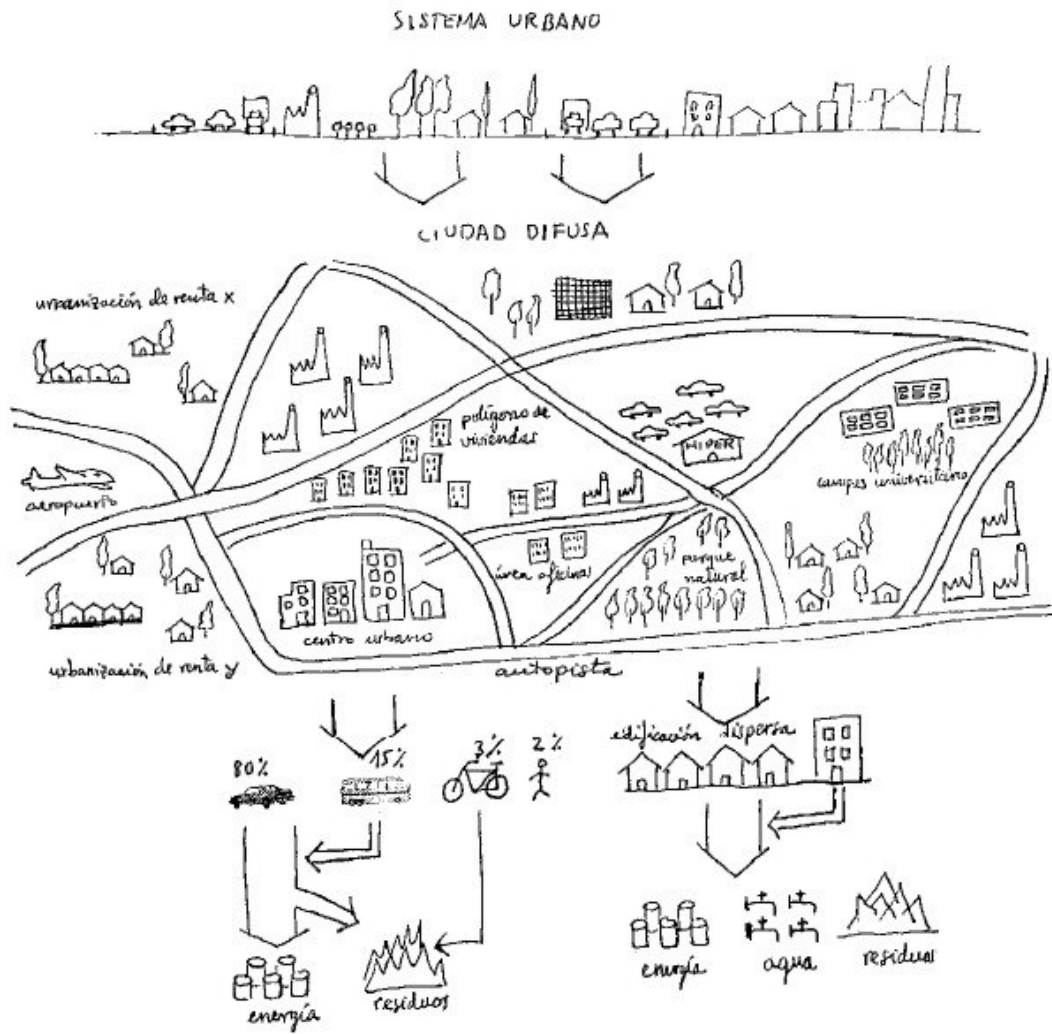 SISTEMA URBANO
CIUDAD DIFUSA
urbanización de renta x
polígono de
viviendas
HIPER
aeropuerto
campus universitario
área oficinas
parque
natural
centro urbano
urbanización de renta y
autopista
edificación dispersa
80%
15%
3%
2%
energía
residuos
energía
aqua
residuos